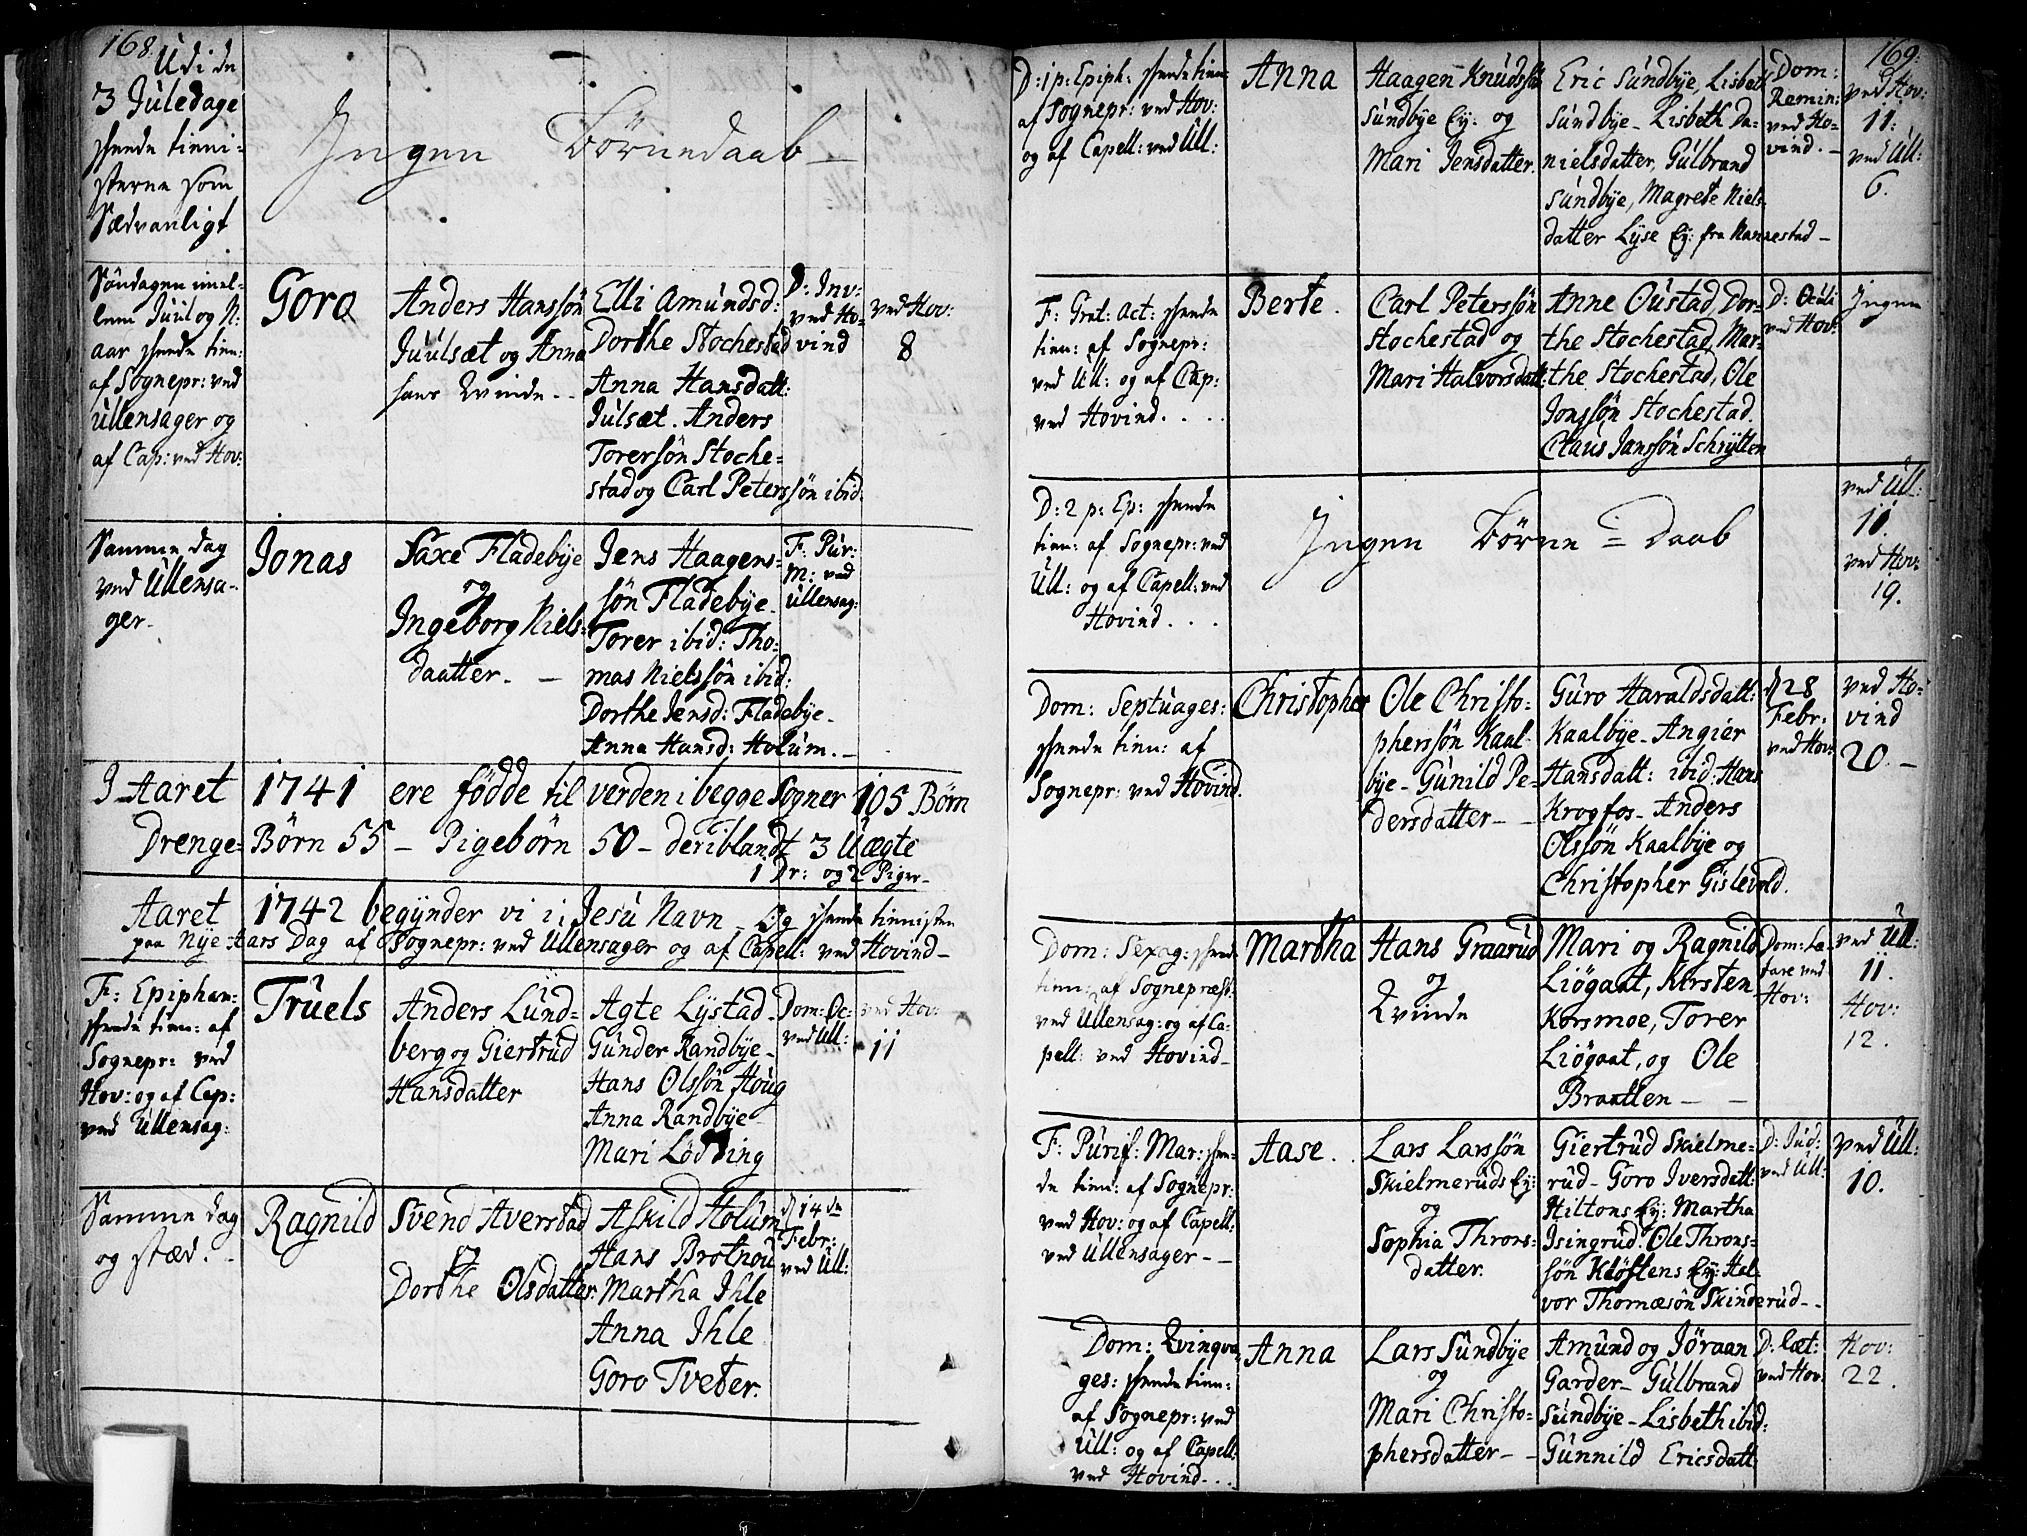 168.
Udi de
3 Juledage
skeede tieni-
sterne som
Sædvanligt
Ingen Börnedaab
Söndagen imel-
lem Juul og N:
aar skeede tien:
af Sognepr: ved
Ullensager og
af Cap: ved Hov:
Goro
Anders Hanssön
Juulsæt og Anna
hans Qvinde - -
Elli Amundsd:
Dorthe Stochestad
Anna Hansdatt:
Julsæt. Anders
Torersön Stoche-
stad og Carl Peterssön ibid:
D: Inv:
ved Ho-
vind
ved Hov:
8
Samme dag
ved Ullensa-
ger-
Jonas
Saxe Fladebye
og
Ingeborg Niels-
daatter. -
Jens Haagens-
sön Fladebye-
Torer ibid: Tho-
mas Nielssön ibid:
Dorthe Jensd: Fladebye-
Anna Hansd: Holum. -
F: Pur:
M: ved
Ullensag:
I Aaret 1741 ere födde til verden i begge Sogner 105 Börn
Drenge-Börn 55 - Pigebörn 50 - deriblandt 3 Uægte
1 Dr: og 2 Piger-
Aaret 1742 begynder vi i Jesu Navn Og skeede tienisten
paa Nye Aars Dag af Sognepr: ved Ullensager og af Capell: ved Hovind-
F: Epiphan:
skeede tien: af
Sognepr: ved
Hov: og af Cap:
ved Ullensag:
Truels
Anders Lund-
berg og Giertrud
Hansdatter
Agte Lystad-
Gunder Randbye-
Hans Olssön Houg
Anna Randbye-
Mari Lödding
Dom: Oc-
ved Ull:
ved Hov:
11
Samme dag
og stæd. -
Ragnild
Svend Averstad
og
Dorthe Olsdatter:
Askild Holum
Hans Brotnou
Martha Ihle
Anna Ihle
Goro Tveter.
d 14de
Febr:
ved Ull:
169.
D: 1 p: Epiph: skeede tien:
af Sognepr: ved Hov:
og af Capell: ved Ull:
Anna
Haagen Knudssön
Sundbye Ey: og
Mari Jensdatter.
Eric Sundbye, Lisbeth
Sundbye- Lisbeth Da-
nielsdatter, Gulbrand
Sundbye, Magrete Niels-
datter Lyse Ey: fra Nannestad -
Dom:
Remin:
ved Ho-
vind. -
ved Hov:
11:
ved Ull:
6.
F: Grat: Act: skeede
tien: af Sognepr:
ved Ull: og af Cap:
ved Hovind. . . .
Berte.
Carl Peterssön
Stochestad og
Mari Halvorsdatt:
Anne Oustad, Dor-
the Stochestad, Mar-
the Stochestad, Ole
Jonssön Stochestad.
Claus Janssön Schrytten
D: Oculi
ved Hov:
Ingen
D: 2 p: Ep: skeede
tien: af Sognepr: ved
Ull: og af Capell: ved
Hovind. . .
Ingen Börne = Daab
ved Ull:
11.
ved Hov:
19.
Dom: Septuages:
skeede tien: af
Sognepr: ved Hovind.
Christopher
Ole Christo-
pherssön Kaal-
bye- Gunild Pe-
dersdatter - -
Guro Haraldsdatt:
Kaalbye- Angier
Hansdatt: ibid: Hans
Krogfos- Anders
Olssön Kaalbye og
Christopher Gislevold.
d 28
Febr:
ved Hov:
ved Ho-
vind
20. -
Dom: Sexag: skeede
tien: af Sognepræst:
ved Ullensag: og af Ca-
pell: ved Hovind-
Martha
Hans Graarud
og
Qvinde
Mari og Ragnild
Liögaat, Kirsten
Korsmoe, Torer
Liögaat, og Ole
Braatten - -
Dom: Læ-
tare ved
Hov:
ved Ull:
11.
Hov:
12.
F: Purif: Mar: skee-
de tien: af Sognepr:
ved Hov: og af Capell:
ved Ullensager - -
Aase.
Lars Larssön
Skielmeruds Ey:
og
Sophia Throns-
datter.
Giertrud Skielme-
rud- Goro Iversdatt:
Hiltons Ey: Martha
Isingrud. Ole Throns-
sön Klöftens Ey: Hal-
vor Thomæsön Skinderud- -
D: Jud:
ved Ull:
ved Ull:
10.
Dom: Qvinqva-
ges: skeede tien:
af Sognepr: ved
Ull: og af Capell:
ved Hovind. . .
Anna
Lars Sundbye
og
Mari Christo-
phersdatter - -
Amund og Jöraan
Garder- Gulbrand
Sundbye- Lisbeth ibid:
Gunnild Ericsdatt:
D: Læt:
ved Hov:
Hov:
22.